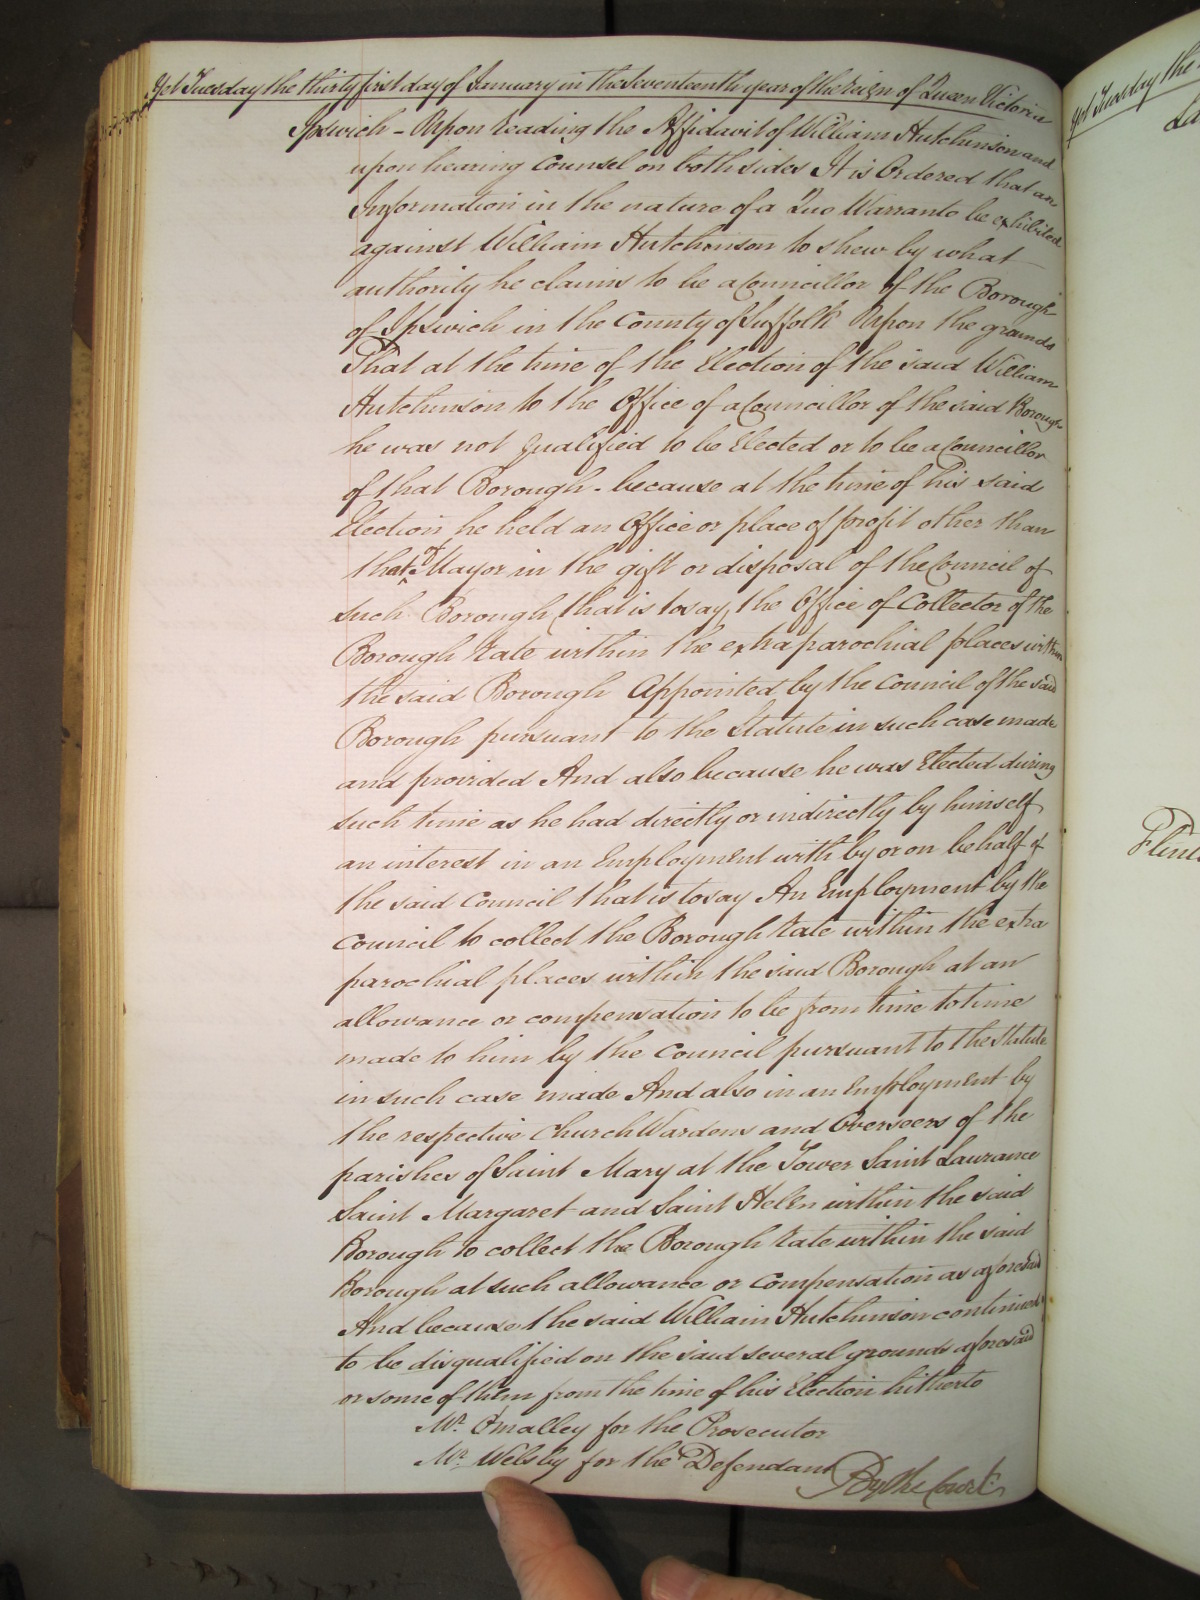 Yet Tuesday the thirty first day of January in the Seventeenth year of the Reign of Queen Victoria
Ipswich - Upon Reading the Affidavit of William Hutchinson and
upon hearing Counsel on both sides It is Ordered that an
Information in the nature of a Quo Warranto be exhibited
against William Hutchinson to shew by what
authority he claims to be a Councillor of the Borough
of Ipswich in the County of Suffolk Upon the grounds
That at the time of the Election of the said William
Hutchinson to the Office of a Councillor of the said Borough
he was not qualified to be Elected or to be a Councillor
of that Borough - because at the time of his said
Election he held an Office or place of profit other than
that of Mayor in the gift or disposal of the Council of
such Borough (that is to say) the Office of Collector of the
Borough Rate within the extra parochial places within
the said Borough Appointed by the Council of the said
Borough pursuant to the Statute in such case made
and provided And also because he was Elected during
such time as he had directly or indirectly by himself
an interest in an Employment with by or on behalf of
the said Council that is to say An Employment by the
Council to collect the Borough Rate within the extra
parochial places within the said Borough at an
allowance or compensation to be from time to time
made to him by the Council pursuant to the Statute
in such case made And also in an Employment by
the respective Church Wardens and Overseers of the
parishes of Saint Mary at the Tower Saint Laurance
Saint Margaret and Saint Helen within the said
Borough to collect the Borough Rate within the said
Borough at such allowance or compensation as aforesaid
And because the said William Hutchinson continued
to be disqualified on the said several grounds aforesaid
or some of them from the time of his Election hitherto
Mr. O'malley for the Prosecutor
Mr. Welsby for the Defendant
By the Court
Yet Tuesday the